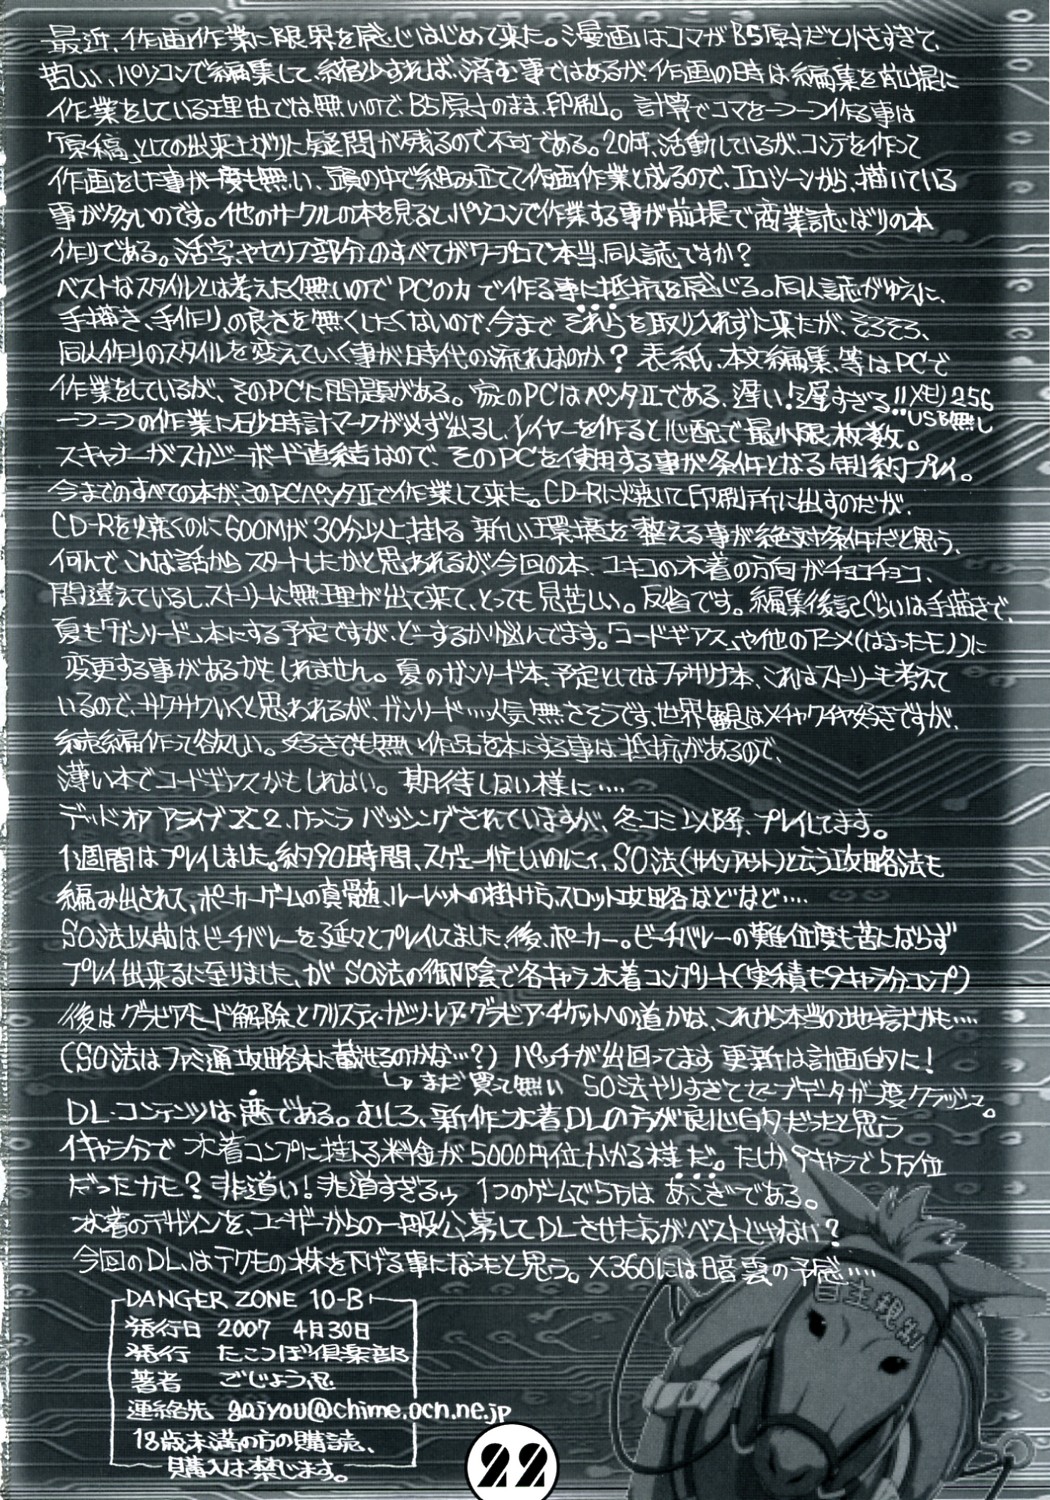 最近、作画作業に限界を感じはじめて来た。漫画はコマがB5原寸だと小さすぎて、
苦しい、パソコンで編集して、縮少すれば、済む事ではあるが、作画の時は編集を前提に
作業をしている理由では無いので、B5原寸のまま、印刷。計算でコマを一つ一つ作る事は
「原稿」としての出来上がりに疑問が残るので不可である。20年、活動しているが、コンテを作って
作画をした事が一度も無い、頭の中で組み立てて作画作業と成るので、エロシーンから、描いている
事が多いのです。他のサークルの本を見ると、パソコンで作業する事が前提で商業誌ばりの本
作りである。活字やセリフ部分のすべてがワープロで本当、同人誌ですか?
ベストなスタイルとは考えたく無いのでPCの力で作る事に抵抗を感じる。同人誌がゆえに、
手描き、手作り、の良さを無くしたくないので、今までそれらを取り入れずに来たが、そろそろ、
同人作りのスタイルを変えていく事が時代の流れなのか?表紙、本文編集、等はPCで
作業をしているが、そのPCに問題がある。家のPCはペンタⅡである、遅い!遅すぎる!!メモリ256
USB無し
一つ一つの作業に砂時計マークが必ず出るし、レイヤーを作ると心配で最小限枚数。
スキャナーがスカジーボード直結なので、そのPCを使用する事が条件となる制約プレイ。
今までのすべての本が、このPCペンタⅡで作業して来た。CD-Rに焼いて印刷所に出すのだが、
CD-Rを焼くのに600Mが30分以上掛る 新しい環境を整える事が絶対条件だと思う、
何んで、こんな話からスタートしたかと思われるが今回の本、ユキコの水着の方向がチョコチョコ、
間違えているし、ストーリーに無理が出て来て、とっても見苦しい。反省です。編集後記ぐらいは手描きで、
夏も「ガンソード」本にする予定ですが、どーするか悩んでます。「コードギアス」や他のアニメ(はまったモノ)に
変更する事があるかもしれません。夏のガンソード本、予定としてはファサリナ本、これはストーリーも考えて
いるので、サクサクいくと思われるが、ガンソード…人気、無さそうです、世界観はメチャクチャ好きですが、
続編作って欲しい。好きでも無い作品を本にする事は抵抗があるので、
薄い本でコードギアスかもしれない。期待しない様に‥‥
デッド オア アライブ X2、けっこうバッシングされていますが、冬コミ以降、プレイしてます。
1週間はプレイしました。約90時間、スゲェー忙しいのにィ、SO法(サインアウト)と云う攻略法も
編み出されて、ポーカーゲームの真髄、ルーレットの掛け方、スロット攻略などなど‥‥
SO法以前はビーチバレーを延々とプレイしてました 後、ポーカー。ビーチバレーの難位度も苦にならず
プレイ出来るに至りました、が SO法の御陰で各キャラ水着コンプリート(実積も9キャラ分コンプ)
後はグラビアモード解除とクリスティ・ガッツ・レア・グラビア・チケットへの道かな、これから本当の地獄かも‥‥
(SO法はファミ通攻略本に載せるのかな…?) パッチが出回ってます 更新は計画的に!
↳まだ買って無い SO法やりすぎてセーブデータが一度クラッシュ。
DL・コンテンツは悪である。むしろ、新作水着、DLの方が良心的だったと思う
1キャラ分で 水着コンプに掛る料金が5000円位かかる様だ。たしか9キャラで5万位
だったカモ?非道い!非道すぎるゥ 1つのゲームで5万は あこぎである。
水着のデザインを、ユーザーからの一般公募してDLさせた方がベストじゃない?
今回のDLはテクモの株を下げる事になったと思う。X360には暗雲の予感‥‥
DANGER ZONE 10-B
発行日 2007 4月30日
発行 たこつぼ倶楽部
著者 ごじょう忍
連絡先 gojyou@chime.ocn.ne.jp
18歳未満の方の購読、
購入は禁じます。
22